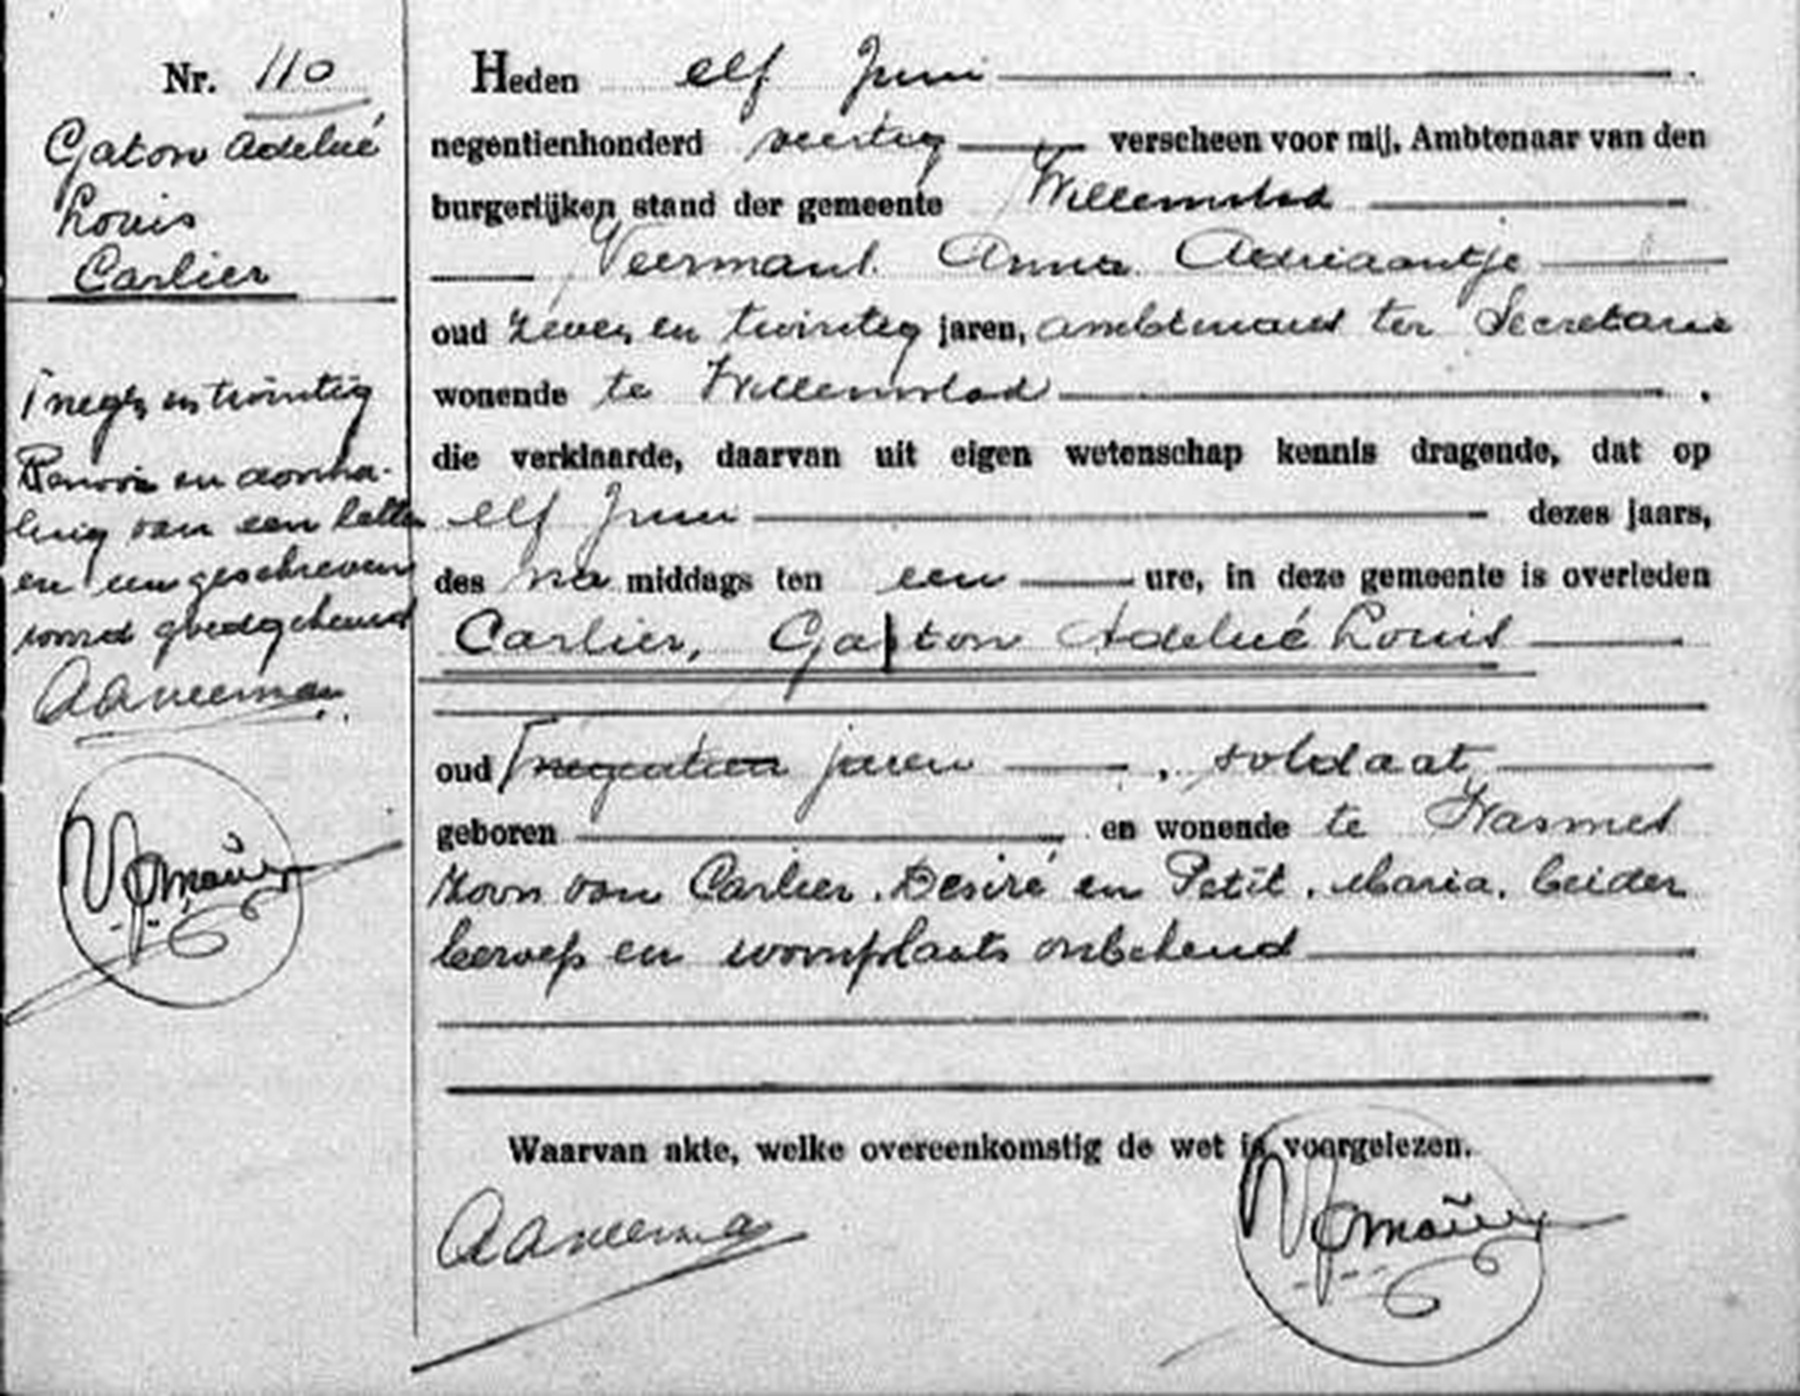 Nr. 110
Gaton Adelué
Louis
Carlier
Γ negen en twintig
Renvooi en doorha-
ling van een letter
en een geschreven
woord goedgekeurd
AAVeerman
Heden elf Juni
negentienhonderd veertig verscheen voor mij, Ambtenaar van den
burgerlijken stand der gemeente Willemstad
Veerman. Anna Adriaantje
oud zeven en twintig jaren, ambtenares ter Secretarie
wonende te Willemstad.
die verklaarde, daarvan uit eigen wetenschap kennis dragende, dat op
elf Juni dezes jaars,
des na middags ten een ure, in deze gemeente is overleden
Carlier, Gaston Adelué Louis
oud Γ negentien jaren, soldaat
geboren en wonende te Wasmes
zoon van Carlier. Desiré en Petit. Maria. beider
beroep en woonplaats onbekend
Waarvan akte, welke overeenkomstig de wet is voorgelezen.
AAVeerman